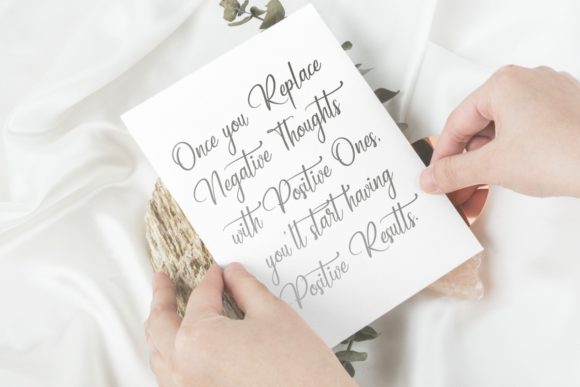 Once you Replace
Negative Thoughts
with Positive Ones,
you'll start having
Positive Results.